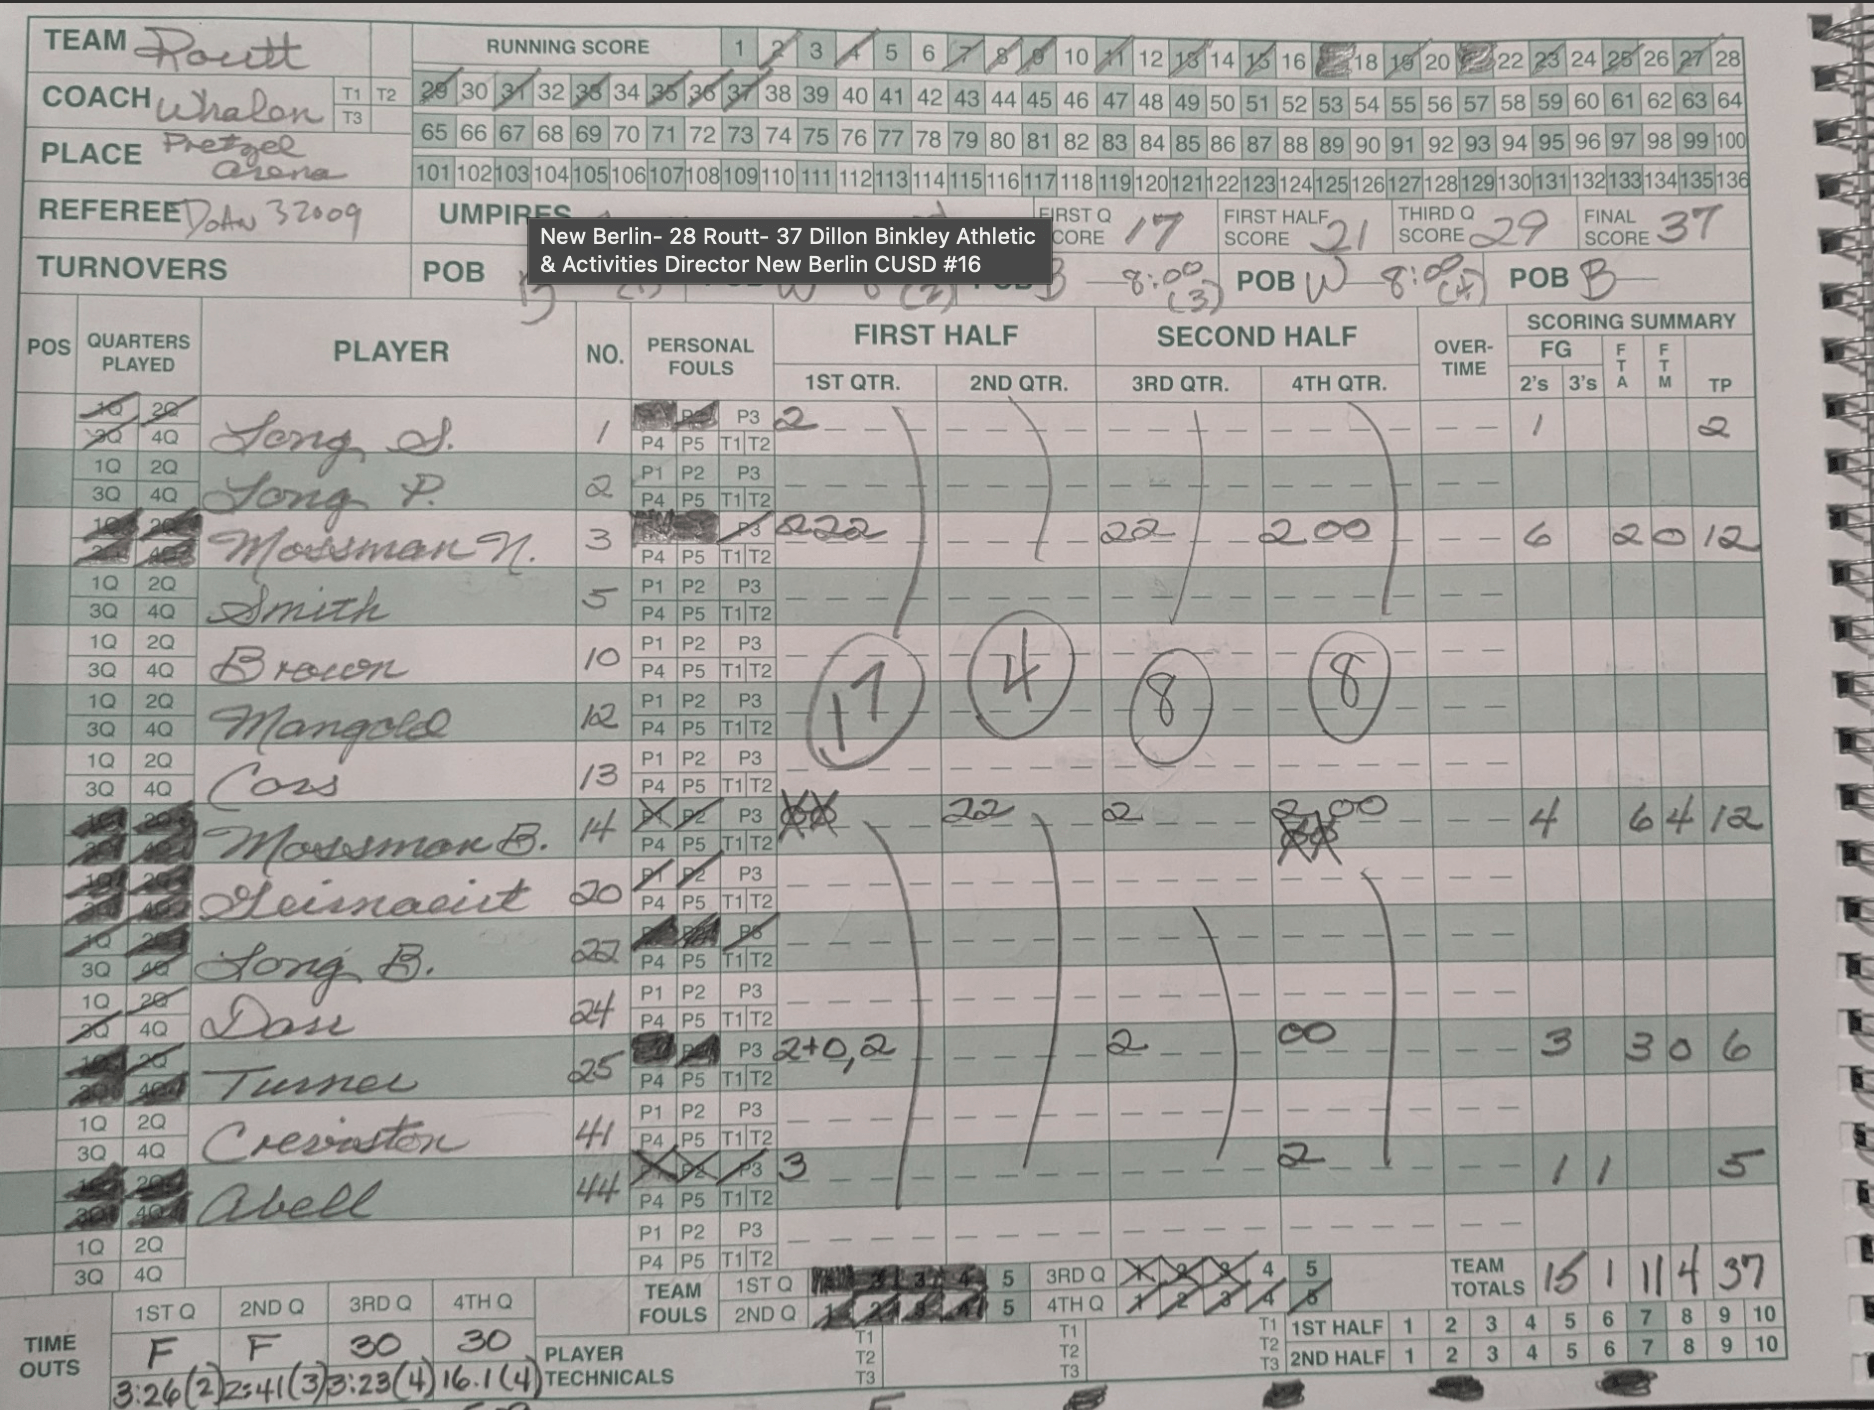 TEAM Routt
RUNNING SCORE 1 2 3 4 5 6 7 8 9 10 11 12 13 14 15 16 18 19 20 22 23 24 25 26 27 28
COACH Whalen T1 T2 T3
29 30 31 32 33 34 35 36 37 38 39 40 41 42 43 44 45 46 47 48 49 50 51 52 53 54 55 56 57 58 59 60 61 62 63 64
65 66 67 68 69 70 71 72 73 74 75 76 77 78 79 80 81 82 83 84 85 86 87 88 89 90 91 92 93 94 95 96 97 98 99 100
PLACE Pretzel Arena
101 102 103 104 105 106 107 108 109 110 111 112 113 114 115 116 117 118 119 120 121 122 123 124 125 126 127 128 129 130 131 132 133 134 135 136
REFEREE DOAN 32009 UMPIRES FIRST Q SCORE 17 FIRST HALF SCORE 21 THIRD Q SCORE 29 FINAL SCORE 37
New Berlin- 28 Routt- 37 Dillon Binkley Athletic
& Activities Director New Berlin CUSD #16
TURNOVERS POB B W B 8:00 (3) POB W 8:00 (4) POB B
POS QUARTERS PLAYED PLAYER NO. PERSONAL FOULS FIRST HALF SECOND HALF OVER-TIME SCORING SUMMARY
1ST QTR. 2ND QTR. 3RD QTR. 4TH QTR. FG 2's 3's FTA FTM TP
1Q 2Q 3Q 4Q Long S. 1 P3 P4 P5 T1 T2 2 1 2
1Q 2Q 3Q 4Q Long P. 2 P1 P2 P3 P4 P5 T1 T2
Mossman N. 3 P3 P4 P5 T1 T2 222 22 200 6 2 0 12
1Q 2Q 3Q 4Q Smith 5 P1 P2 P3 P4 P5 T1 T2
1Q 2Q 3Q 4Q Brown 10 P1 P2 P3 P4 P5 T1 T2
17 4 8 8
1Q 2Q 3Q 4Q Mangold 12 P1 P2 P3 P4 P5 T1 T2
1Q 2Q 3Q 4Q Cors 13 P1 P2 P3 P4 P5 T1 T2
Mossman B. 14 P1 P2 P3 P4 P5 T1 T2 22 2 2,00 4 6 4 12
20 P1 P2 P3 P4 P5 T1 T2
1Q 3Q 4Q Long B. 22 P3 P4 P5 T1 T2
1Q 2Q 3Q 4Q 24 P1 P2 P3 P4 P5 T1 T2
2Q Turner 25 P3 P4 P5 T1 T2 2+0,2 2 00 3 3 0 6
1Q 2Q 3Q 4Q 41 P1 P2 P3 P4 P5 T1 T2
Abell 44 P2 P3 P4 P5 T1 T2 3 2 1 1 5
1Q 2Q 3Q 4Q P1 P2 P3 P4 P5 T1 T2
TEAM FOULS 1ST Q 3 4 5 3RD Q 1 2 3 4 5 TEAM TOTALS 15 1 11 4 37
2ND Q 1 2 3 4 5 4TH Q 1 2 3 4 5
TIME OUTS 1ST Q 2ND Q 3RD Q 4TH Q
F F 30 30
3:26(2) 2:41(3) 3:23(4) 16.1(4)
PLAYER TECHNICALS T1 T2 T3 T1 T2 T3 T1 T2 T3
1ST HALF 1 2 3 4 5 6 7 8 9 10
2ND HALF 1 2 3 4 5 6 7 8 9 10